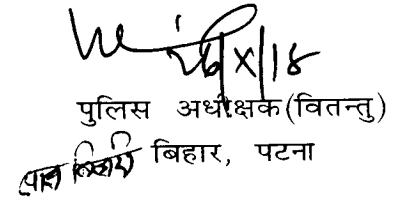 26/X/18
पुलिस अधीक्षक(वितन्तु)
बिहार, पटना